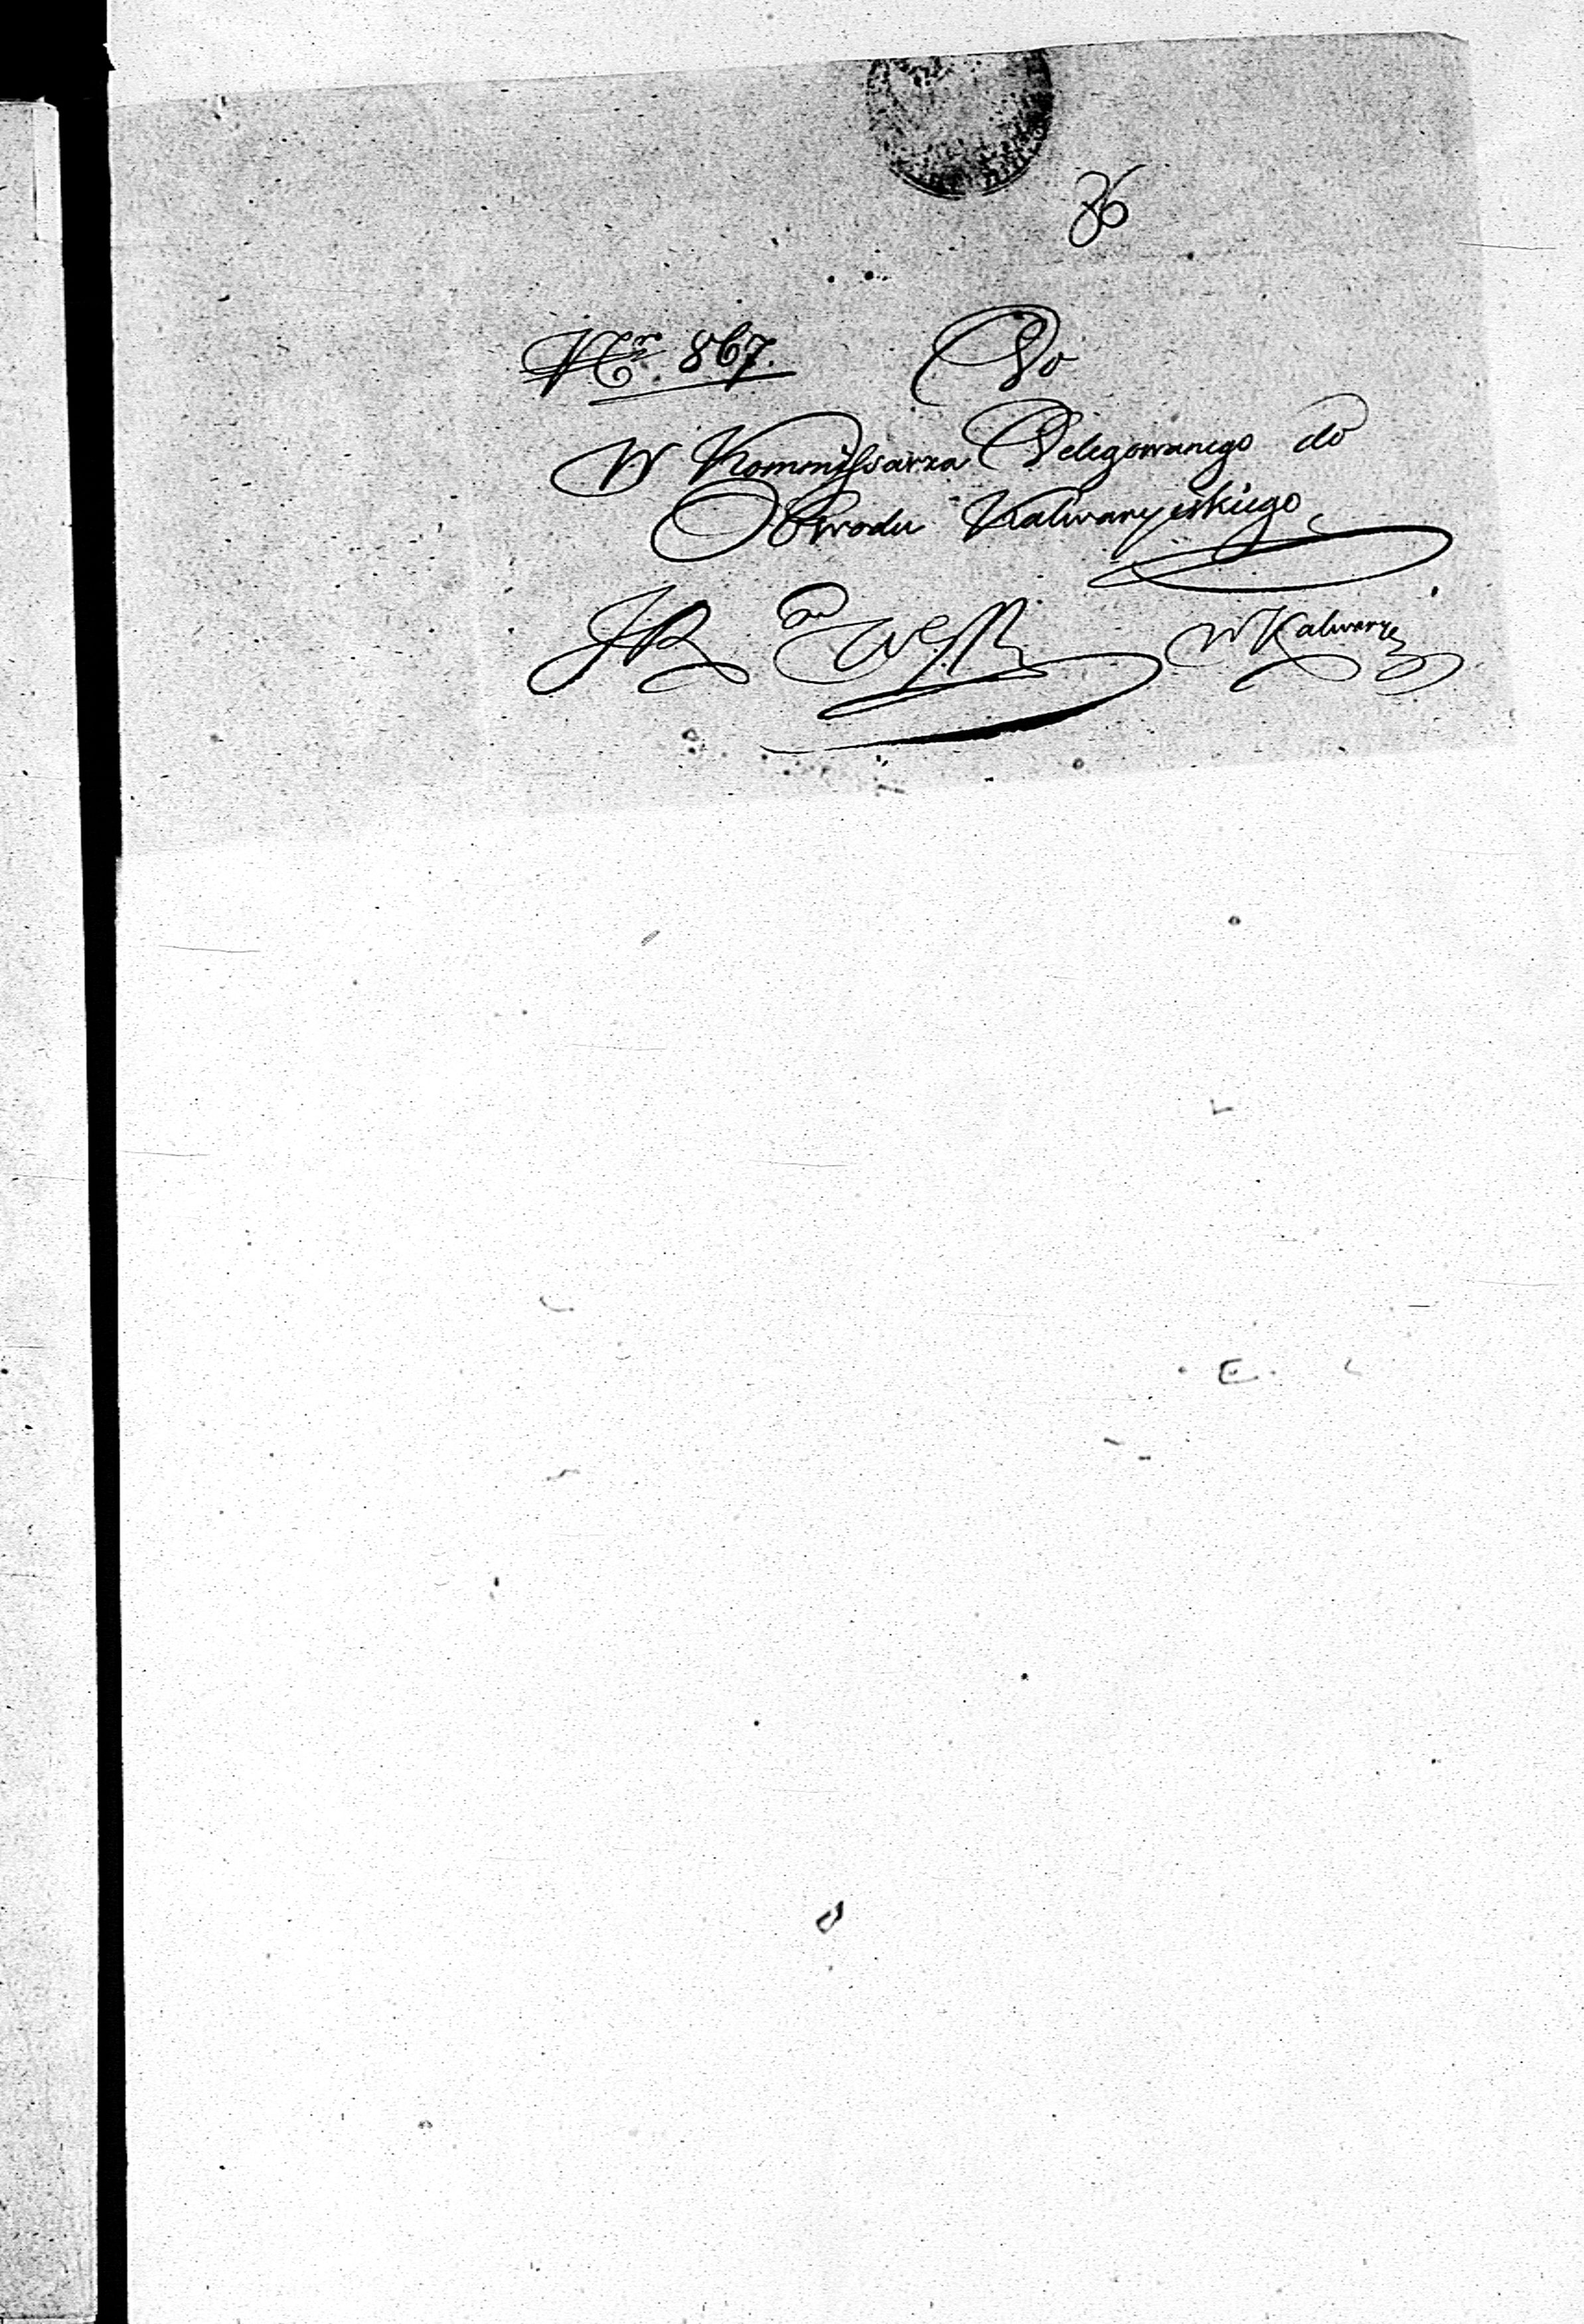 36
Nr. 867. Do
W Kommissarza Delegowanego do
Obwodu Kalwaryiskiego
w Kalwaryi